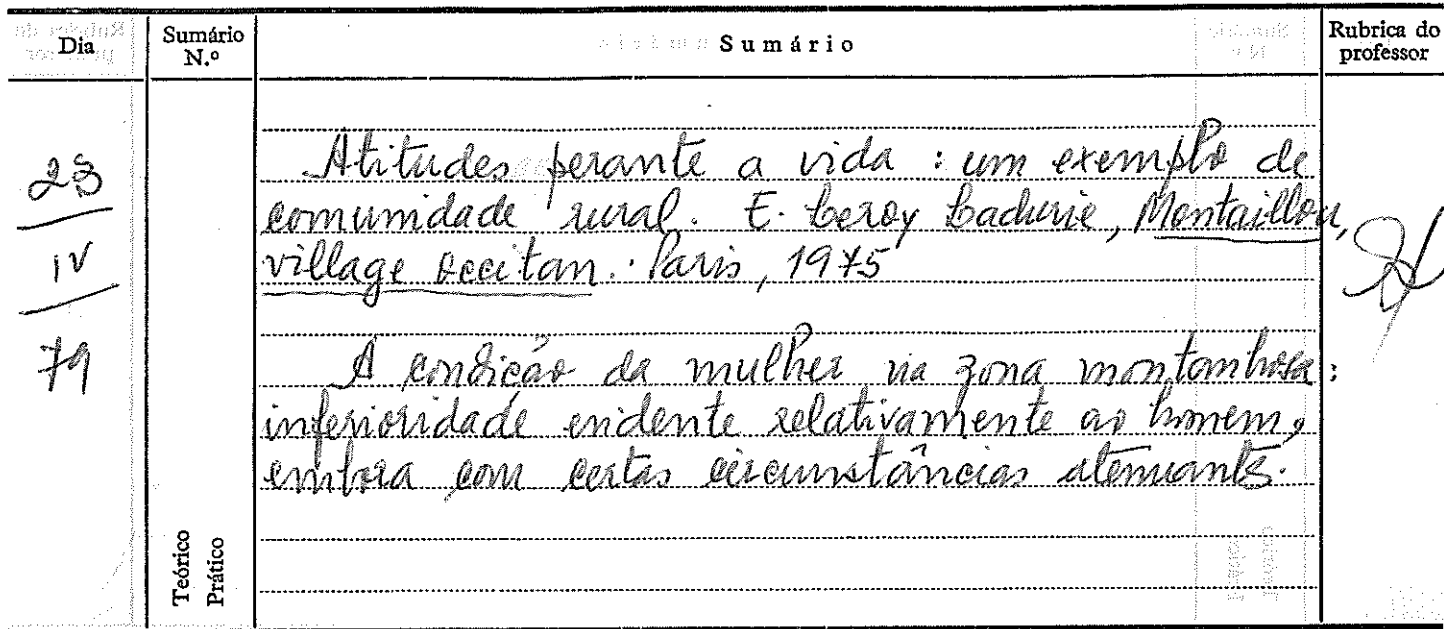 Dia Sumário N.º Sumário Rubrica do professor
23 IV 79
Atitudes perante a vida : um exemplo de
comunidade rural. E. Leroy Ladurie, Montaillou,
village occitan. Paris, 1975
A condição da mulher na zona montanhosa:
inferioridade evidente relativamente ao homem,
embora com certas circunstâncias atenuantes.
Teórico
Prático